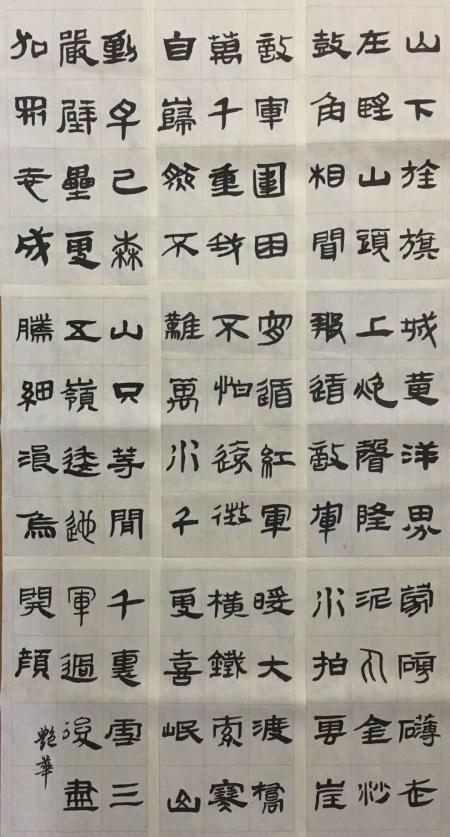 山下旌旗
在望山頭
鼓角相聞
敵軍圍困
萬千重我
自巋然不
動早已森
嚴壁壘更
加眾志成
城黄洋界
上炮聲隆
報道敵軍
宵遁紅軍
不怕遠征
難萬水千
山只等閒
五嶺逶迤
騰細浪烏
蒙磅礴走
泥丸金沙
水拍雲崖
暖大渡橋
橫鐵索寒
更喜岷山
千裏雪三
軍過後盡
開顏
艷華